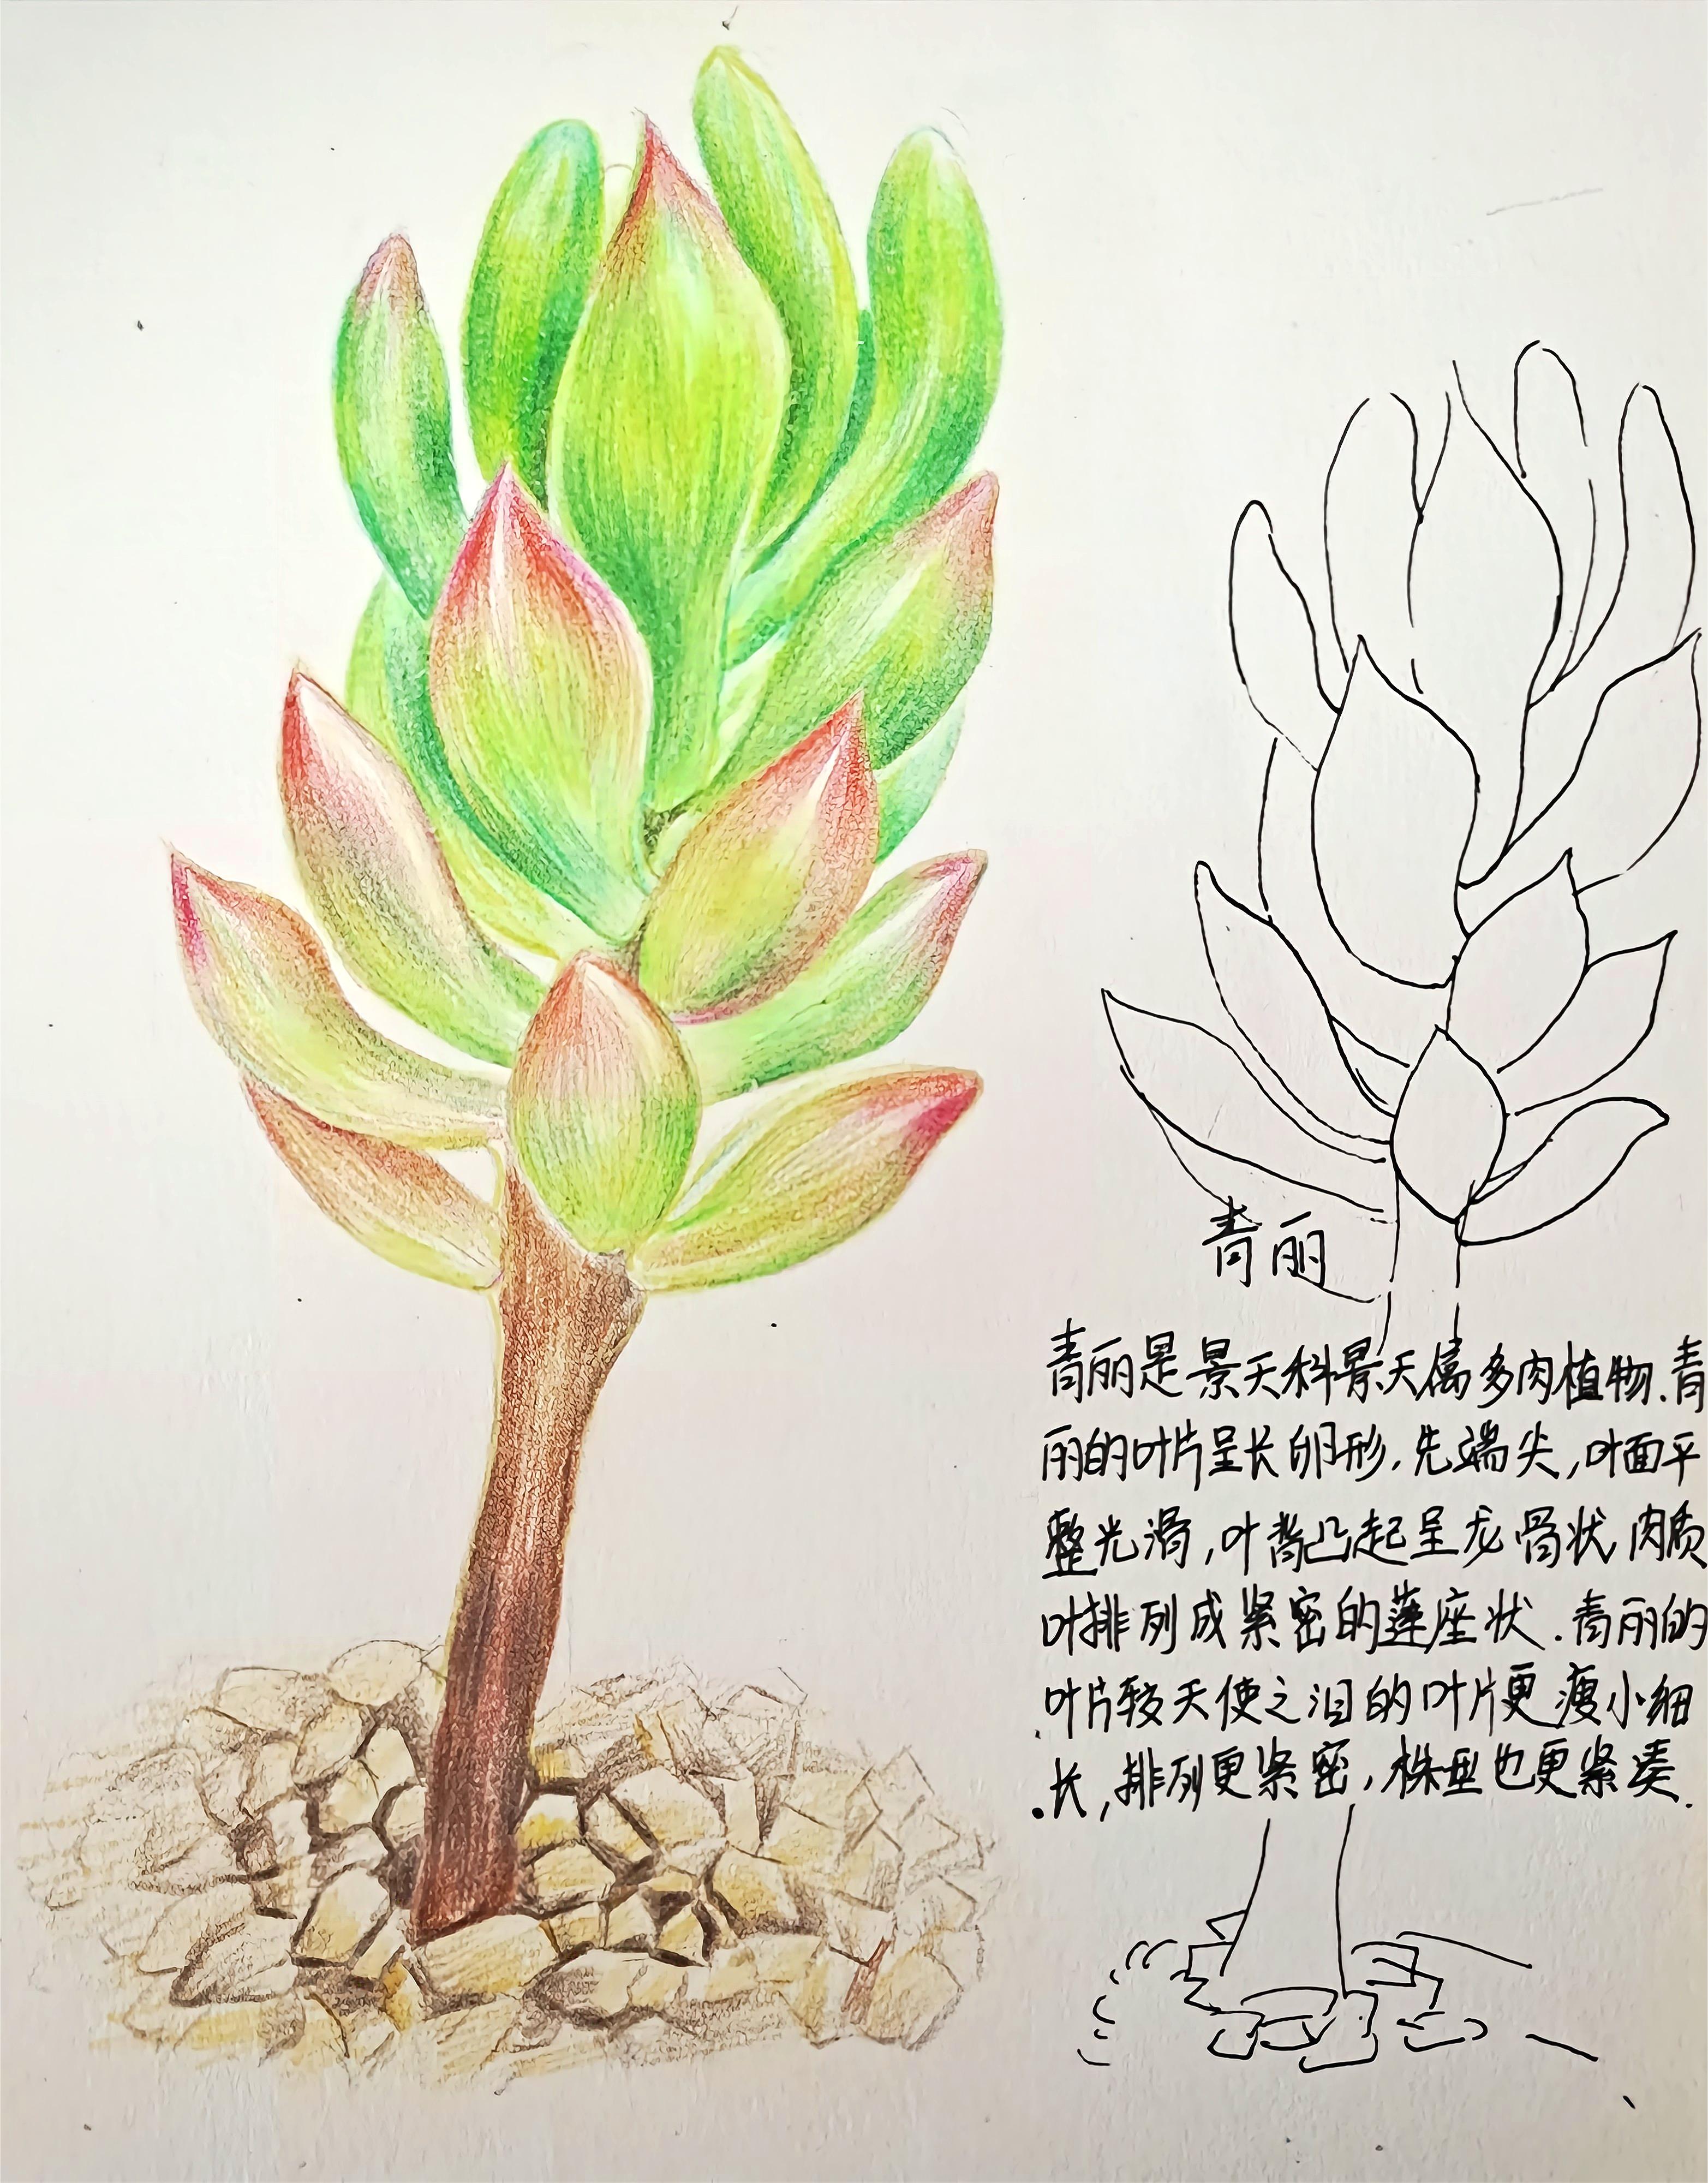 青丽
青丽是景天科景天属多肉植物.青
丽的叶片呈长卵形,先端尖,叶面平
整光滑,叶背凸起呈龙骨状,肉质
叶排列成紧密的莲座状.青丽的
叶片较天使之泪的叶片更瘦小细
长,排列更紧密,株型也更紧凑.